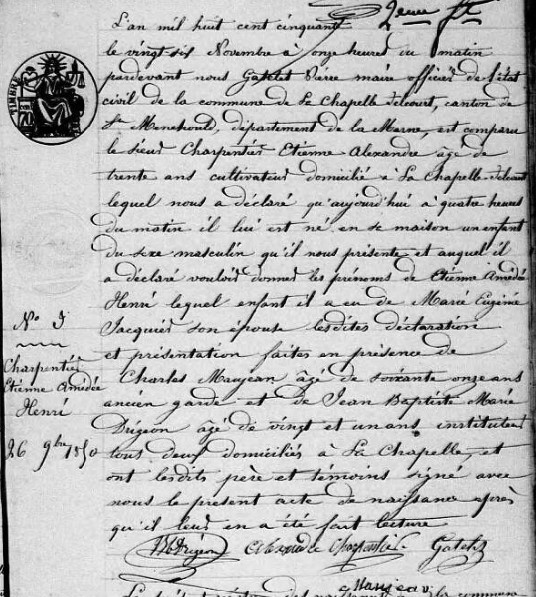 2eme ft
L'an mil huit cent cinquante
le vingt six Novembre à onze heures du matin
pardevant nous Gatelet Pierre maire officier de l'état
civil de la commune de La Chapelle felcourt, canton de
Ste Menehould, département de la Marne, est comparu
le sieur Charpentier Etienne Alexandre âgé de
trente ans cultivateur domicilié à La Chapelle-felcourt
lequel nous a déclaré qu'aujourd'hui à quatre heures
du matin il lui est né en sa maison un enfant
du sexe masculin qu'il nous présente et auquel il
a déclaré vouloir donner les prénoms de Etienne Amédée
Henri lequel enfant il a eu de Marie Eugénie
Jacquier son épouse lesdites déclaration
et présentation faites en présence de
Charles Maujean âgé de soixante onze ans
ancien garde et de Jean Baptiste Marie
Drigeon agé de vingt et un ans instituteur
tous deux domiciliés à La Chapelle, et
ont lesdits père et témoins signé avec
nous le présent acte de naissance après
qu'il leur en a été fait lecture
TIMBRE
No 5
Charpentier
Etienne Amédée
Henri
26 9bre 1850
JB Drigeon Alexandre Charpentier Gatelet
Maujean